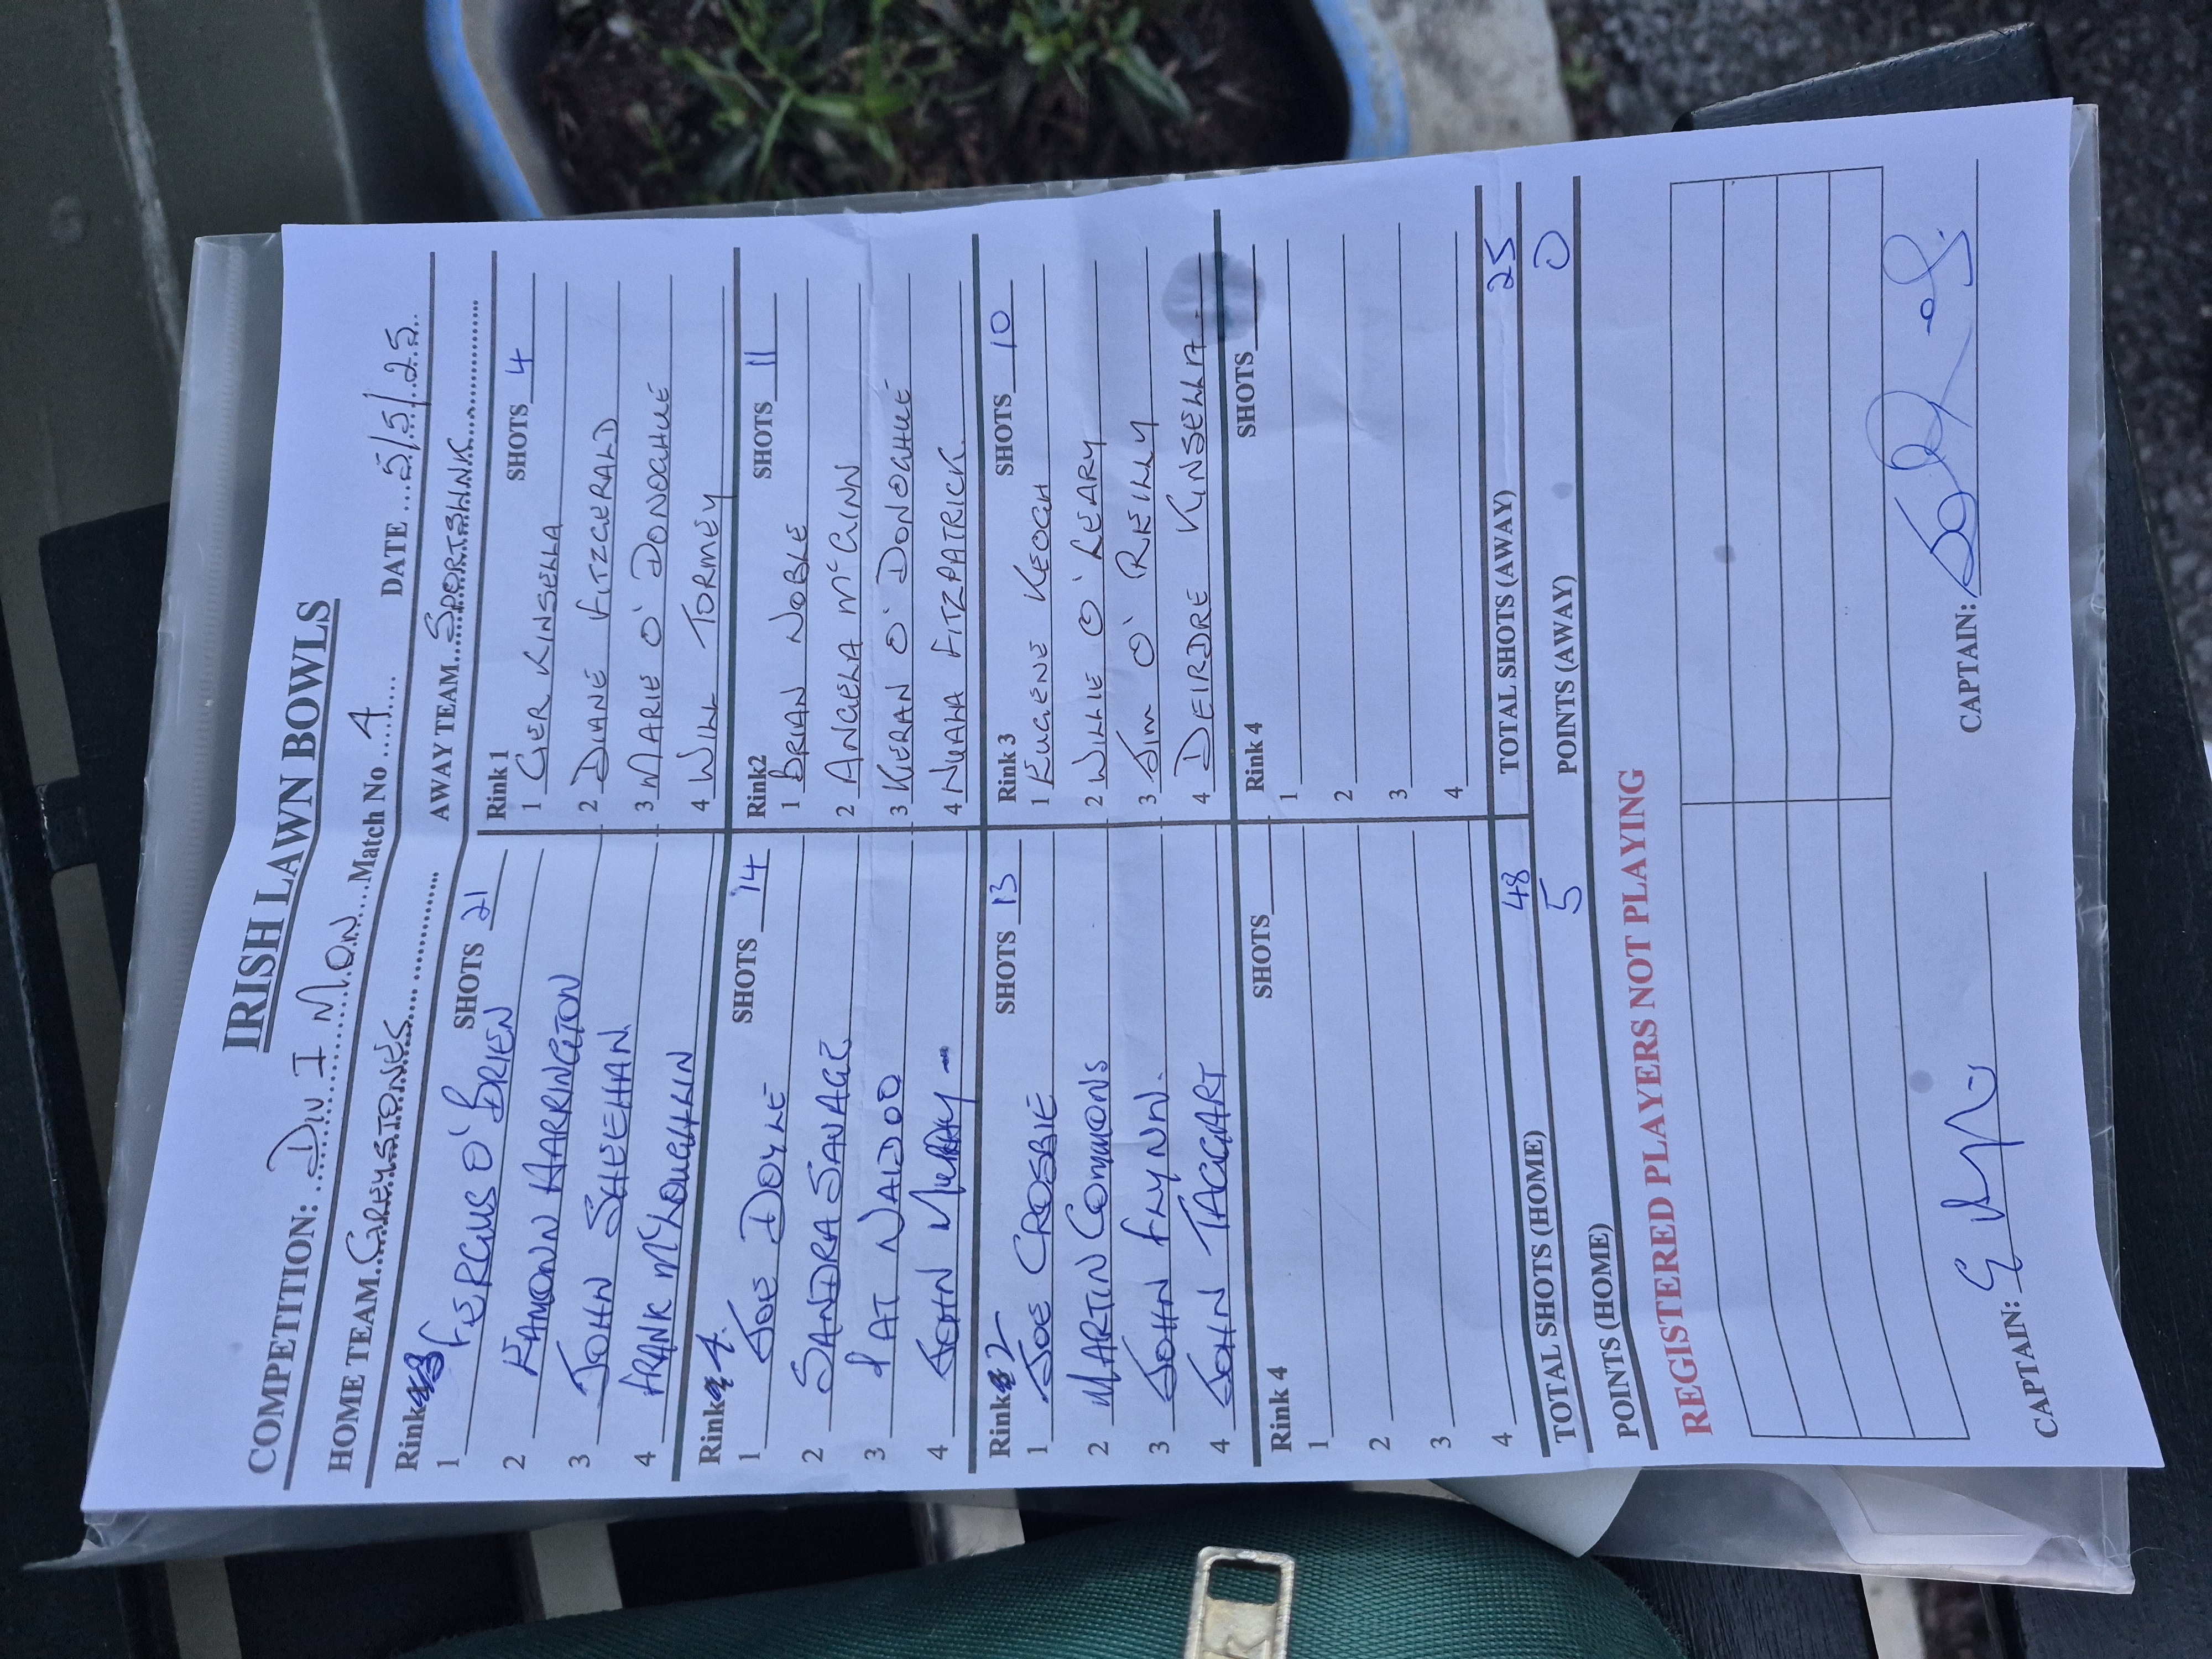 IRISH LAWN BOWLS
COMPETITION: DIV I MON Match No 4 DATE 5/5/25
HOME TEAM GREYSTONES AWAY TEAM SPORTSLINK
Rink SHOTS 21
1 FERGUS O' BRIEN
2 EAMONN HARRINGTON
3 JOHN SHEEHAN
4 FRANK McLOUGHLIN
Rink 1 SHOTS 4
1 GER KINSELLA
2 DIANE FITZGERALD
3 MARIE O' DONOGHUE
4 WILL TORMEY
Rink 4. SHOTS 14
1 JOE DOYLE
2 SANDRA SAVAGE
3 PAT NAIDOO
4 JOHN MURRAY
Rink2 SHOTS 11
1 BRIAN NOBLE
2 ANGELA McGINN
3 KIERAN O' DONOGHUE
4 NUALA FITZPATRICK
Rink 2 SHOTS 13
1 JOE CROSBIE
2 MARTIN COMMONS
3 JOHN FLYNN.
4 JOHN TAGGART
Rink 3 SHOTS 10
1 EUGENE KEOGH
2 WILLIE O' LEARY
3 JIM O' REILLY
4 DEIRDRE KINSELLA
Rink 4 SHOTS
1
2
3
4
Rink 4 SHOTS
1
2
3
4
TOTAL SHOTS (HOME) 48 TOTAL SHOTS (AWAY) 25
POINTS (HOME) 5 POINTS (AWAY) 0
REGISTERED PLAYERS NOT PLAYING
CAPTAIN: CAPTAIN: